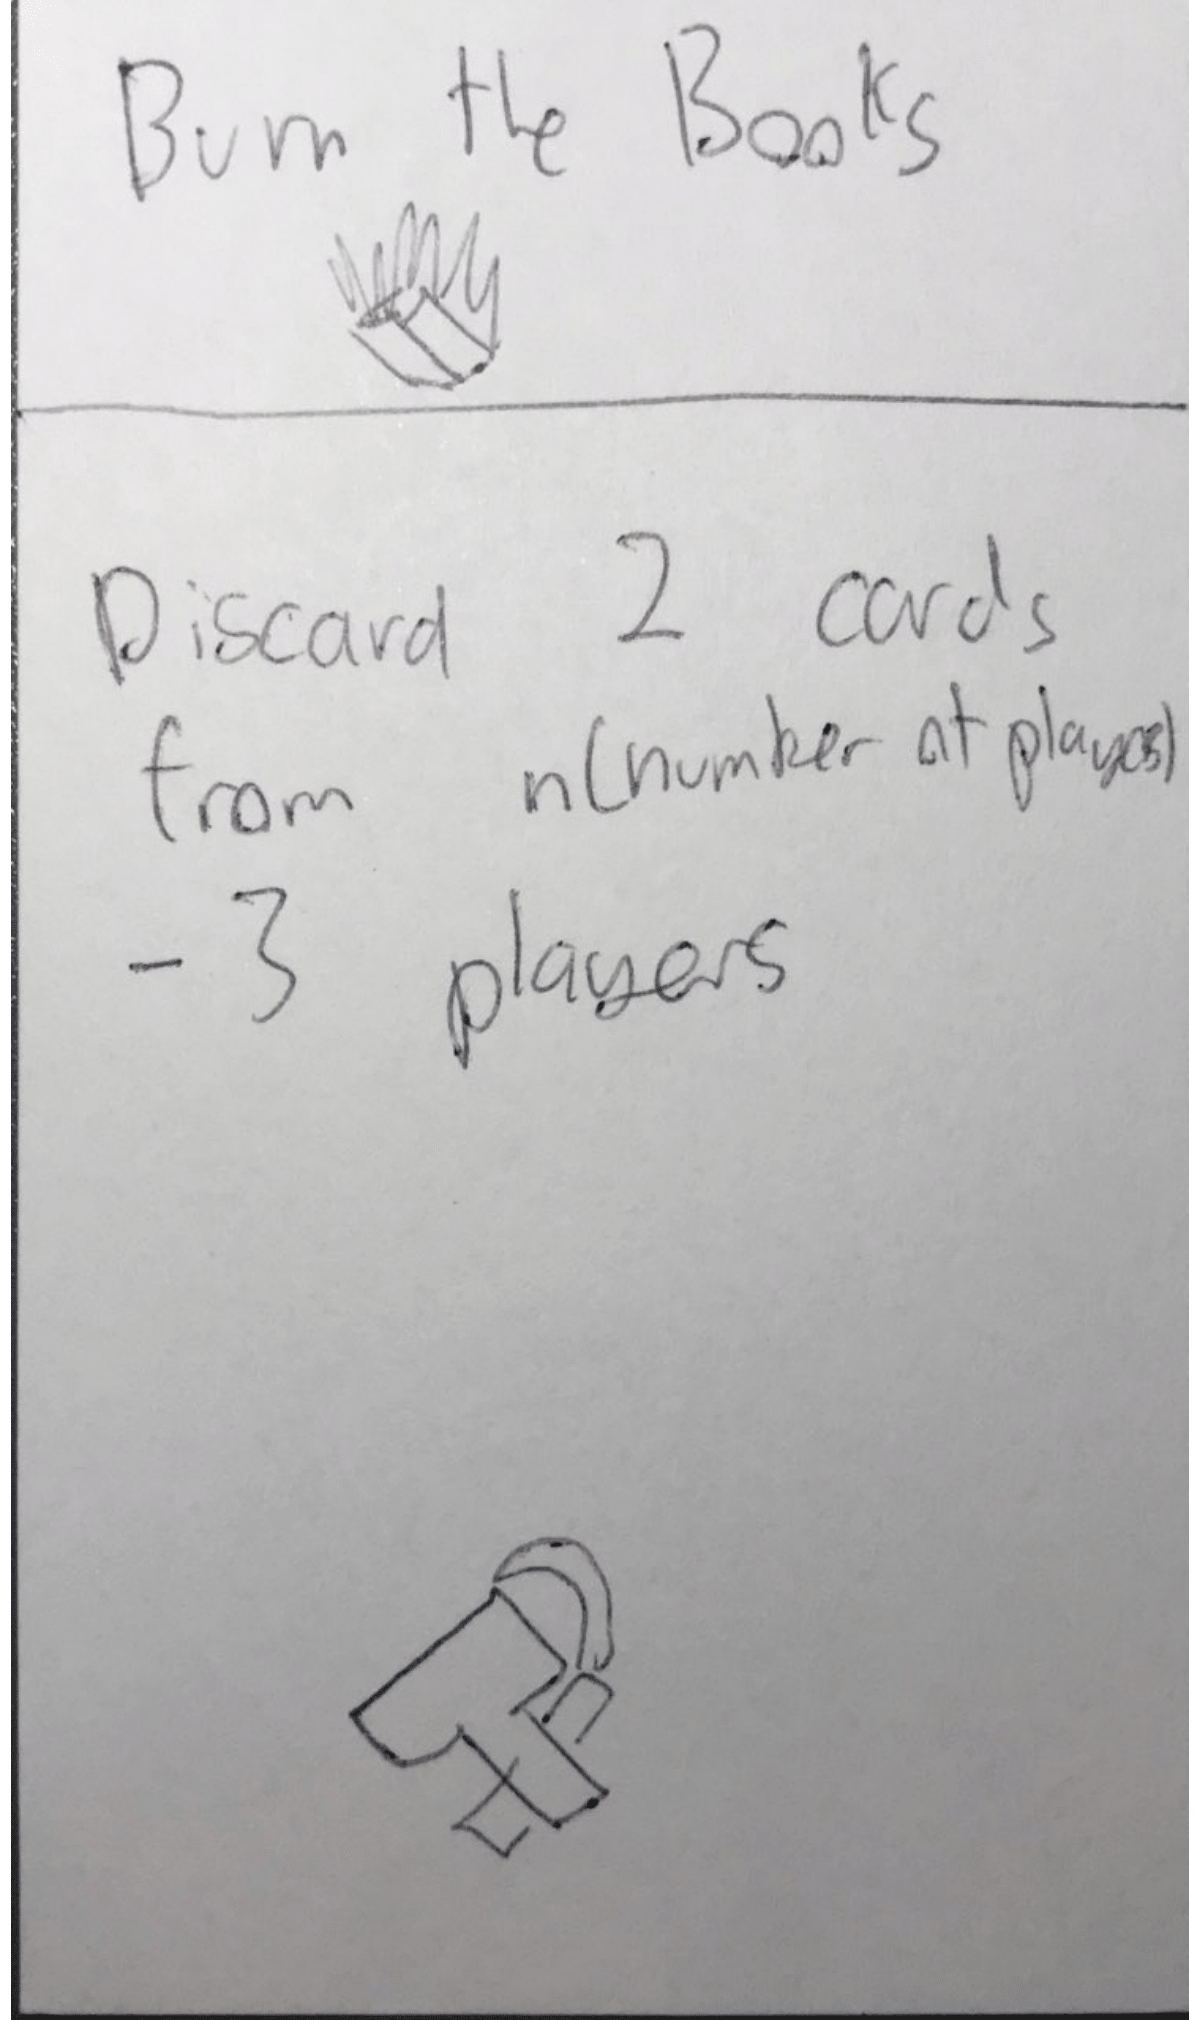 Burn the Books
Discard 2 cards
from n(number of players)
-3 players